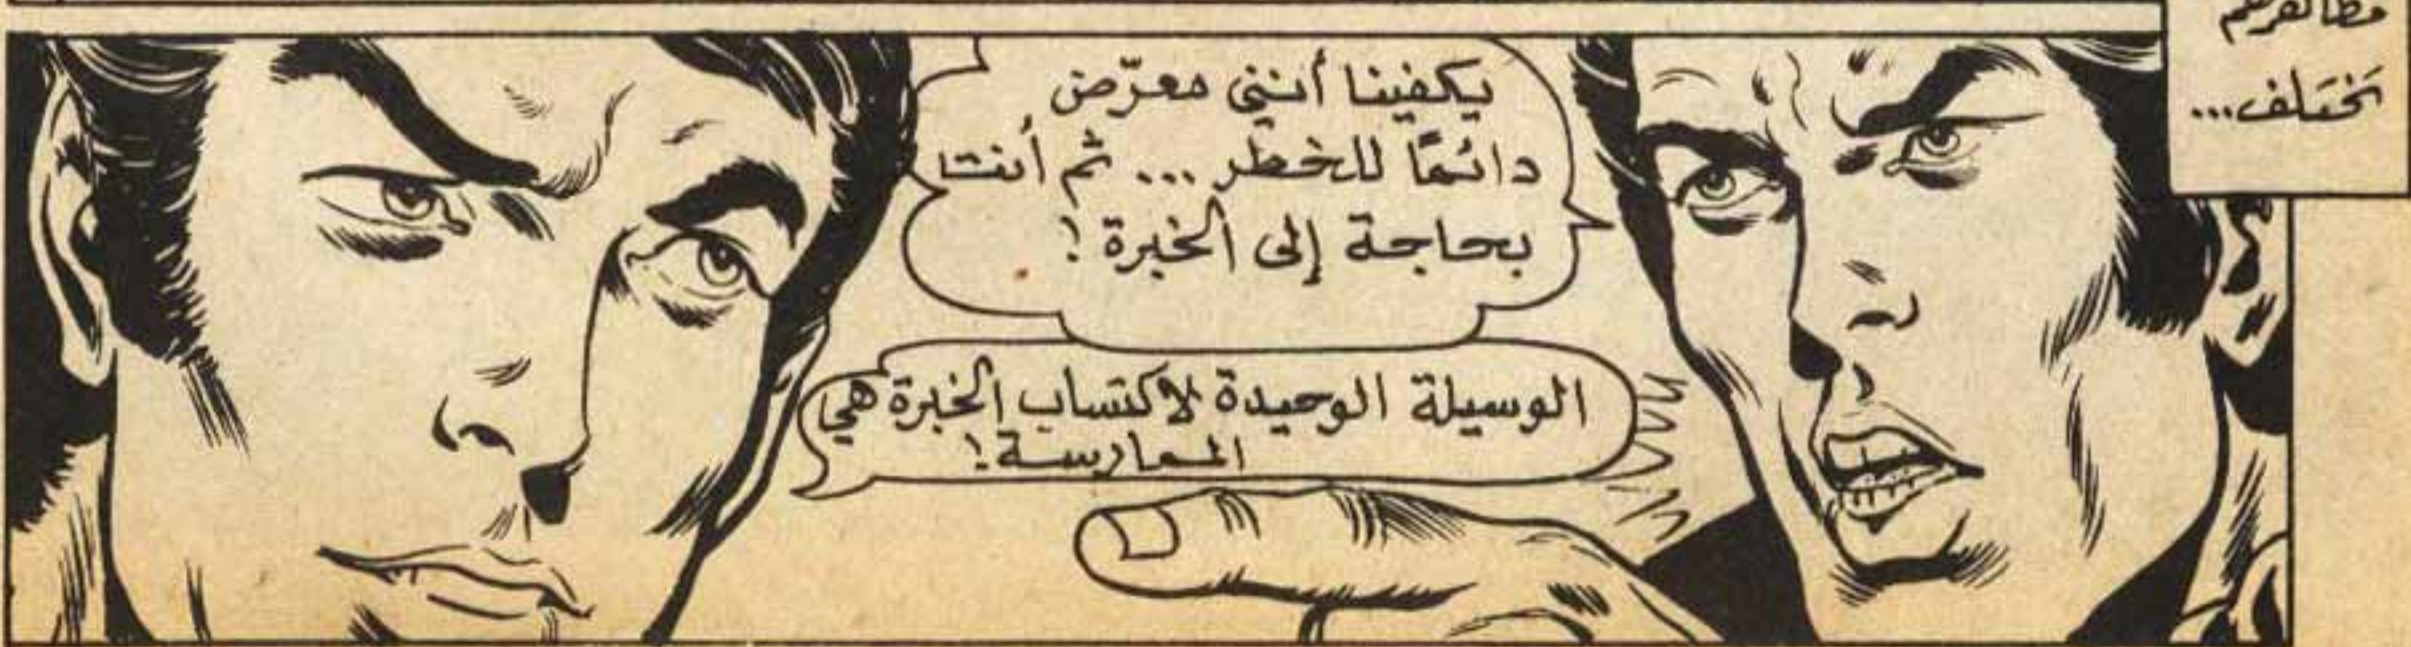 تختلف...
يكفينا أنني معرّض
دائمًا للخطر ... ثم أنت
بحاجة إلى الخبرة !
الوسيلة الوحيدة لاكتساب الخبرة هي
الممارسة !